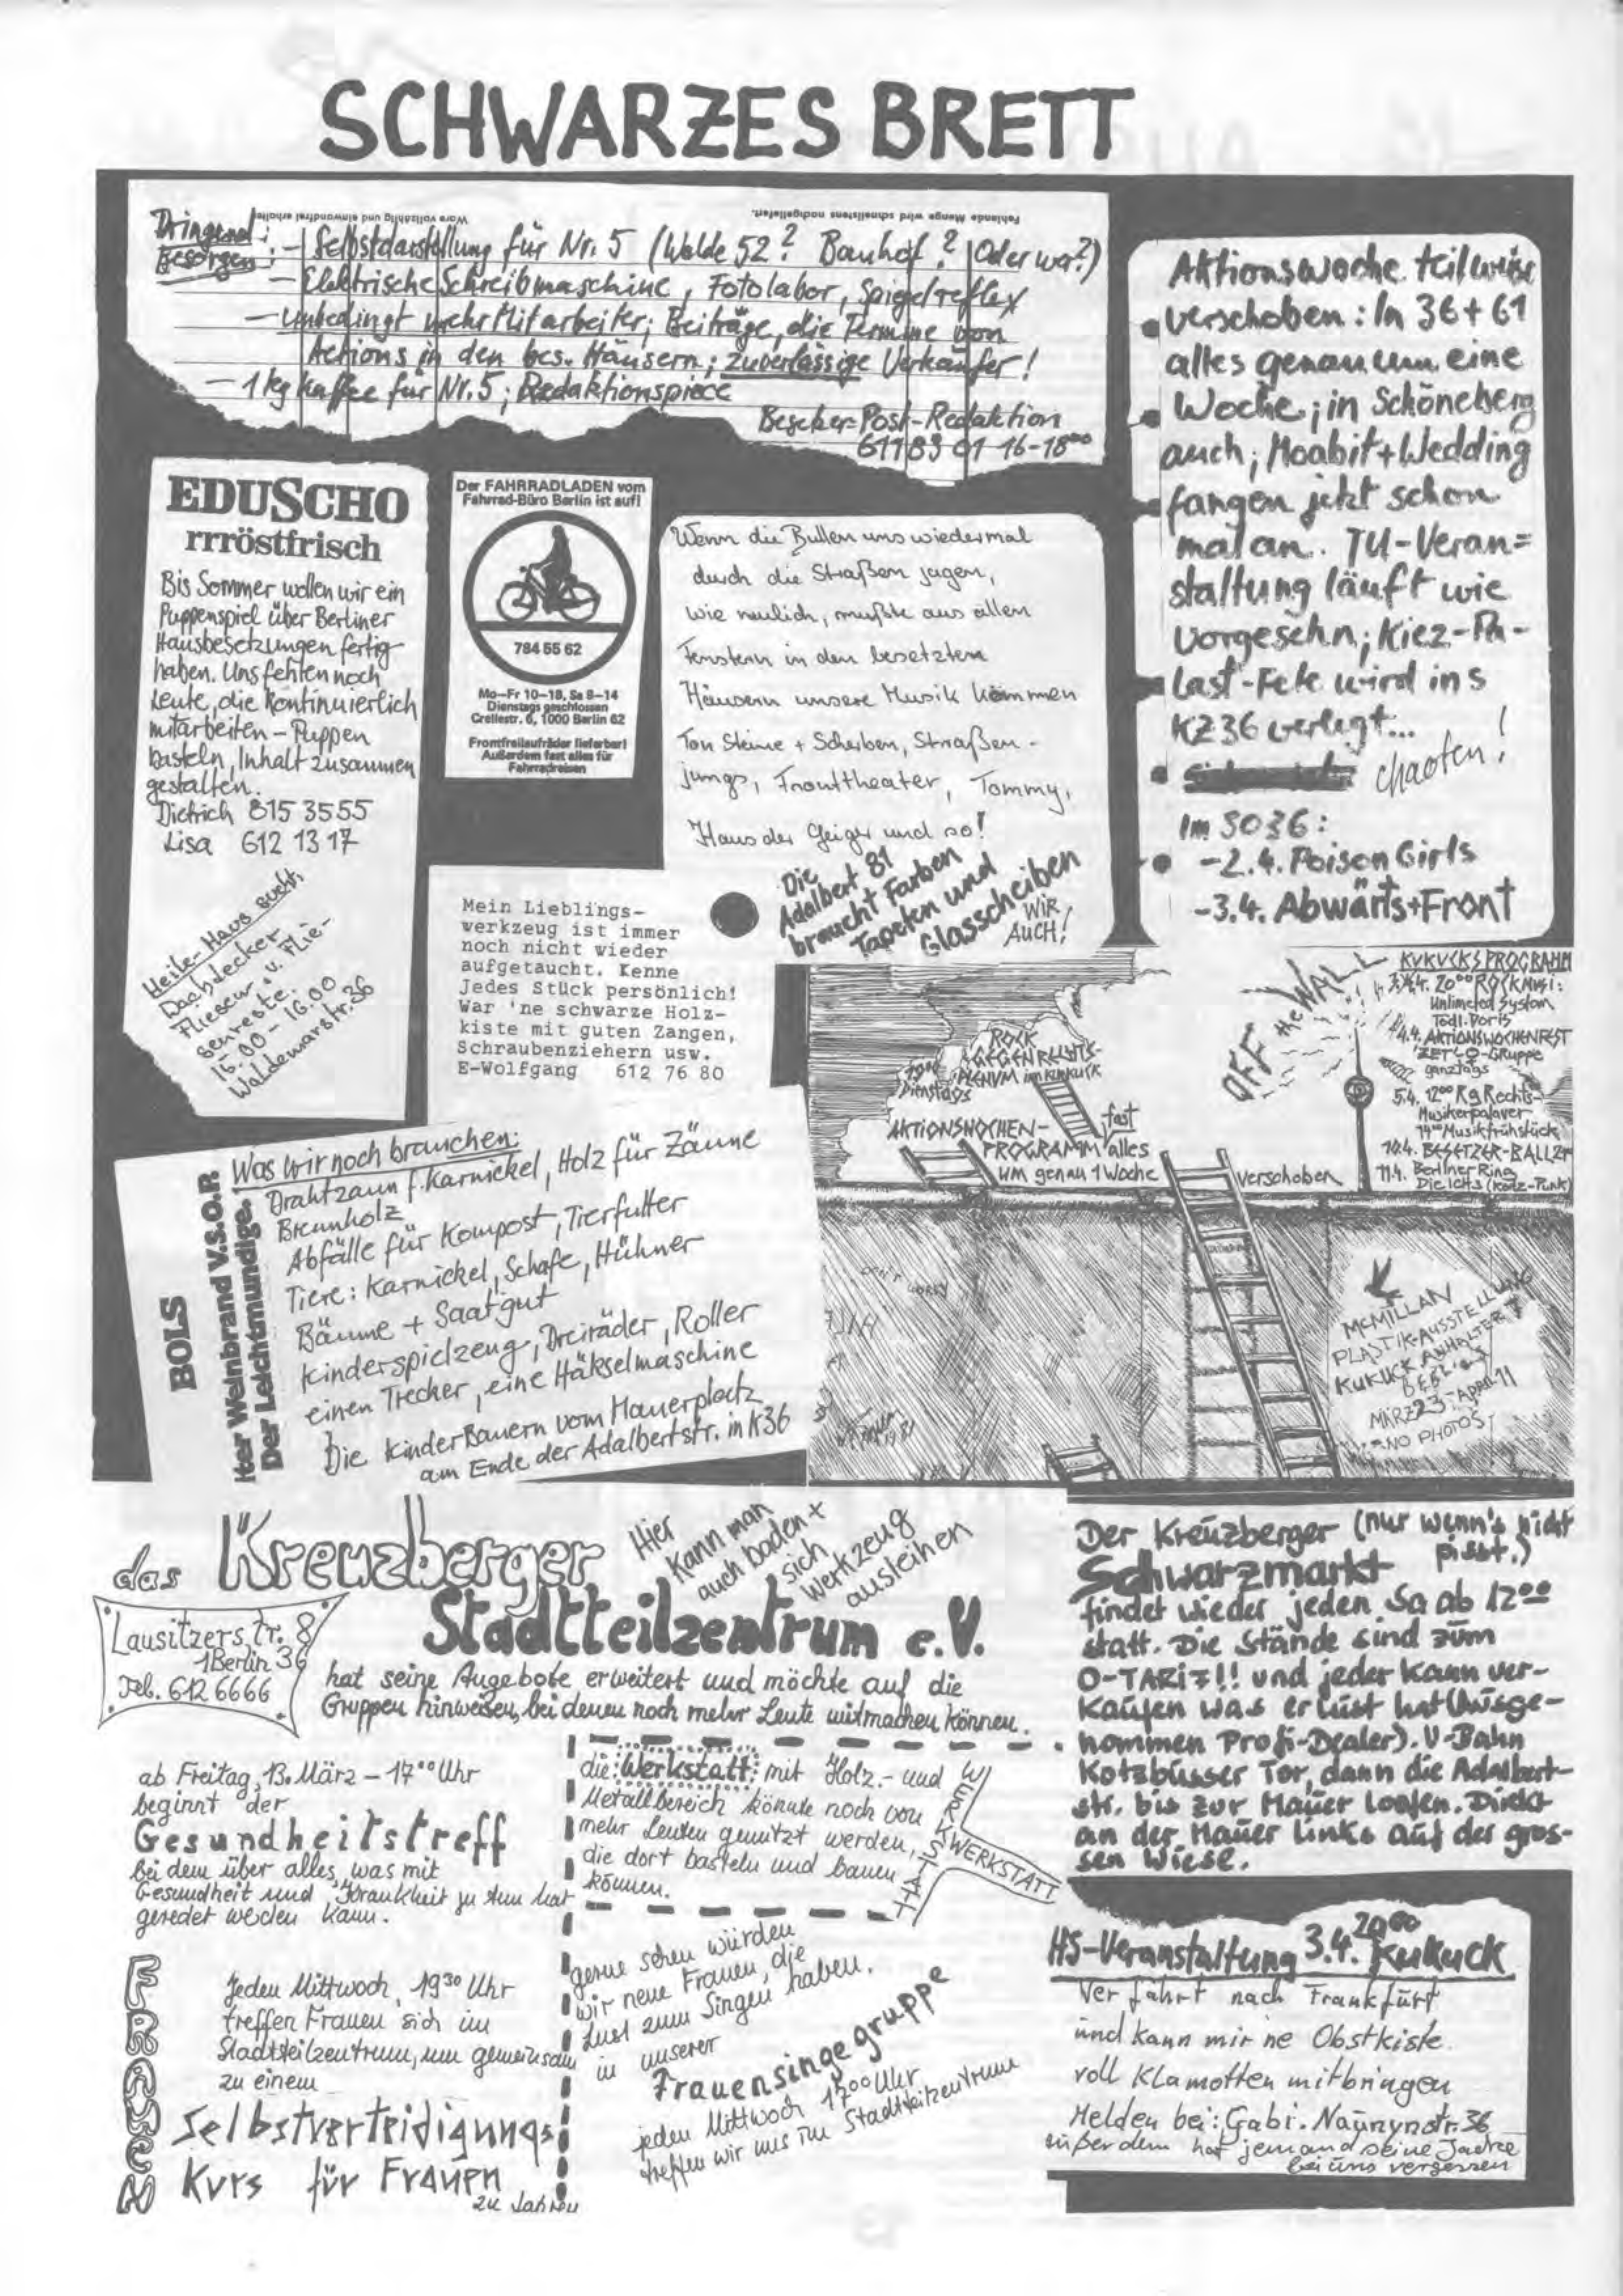 SCHWARZES BRETT
Ware vollzählig und einwandfrei erhalten
Fehlende Menge wird schnellstens nachgeliefert.
Dringend besorgen:
- Selbstdarstellung für Nr. 5 (Walde 52? Bauhof? Oder wa?)
- Elektrische Schreibmaschine, Fotolabor, Spiegelreflex
- unbedingt mehr Mitarbeiter; Beiträge, die Termine von
Actions in den bes. Häusern; zuverlässige Verkäufer!
- 1 kg Kaffee für Nr. 5; Redaktionspiece
Besetzer-Post-Redaktion
611 83 01 16-18⁰⁰
Aktionswoche teilweise
verschoben: In 36+61
alles genau um eine
Woche; in Schöneberg
auch; Moabit+Wedding
fangen jetzt schon
mal an. TU-Veran=
staltung läuft wie
vorgesehn; Kiez-Pa-
last-Fete wird ins
KZ36 verlegt...
chaoten!
Im SO36:
-2.4. Poison Girls
-3.4. Abwärts+Front
EDUSCHO
rrröstfrisch
Bis Sommer wollen wir ein
Puppenspiel über Berliner
Hausbesetzungen fertig
haben. Uns fehlen noch
Leute, die kontinuierlich
mitarbeiten - Puppen
basteln, Inhalt zusammen
gestalten.
Dietrich 815 3555
Lisa 612 13 17
Heile-Haus sucht
Dachdecker
Fliesen u. Flie-
senreste.
16.00 - 16.00
Waldemarstr. 36
Der FAHRRADLADEN vom
Fahrrad-Büro Berlin ist auf!
784 55 62
Mo-Fr 10-18, Sa 9-14
Dienstags geschlossen
Crellestr. 6, 1000 Berlin 62
Frontfreilaufräder lieferbar!
Außerdem fast alles für
Fahrradreisen
Wenn die Bullen uns wiedermal
durch die Straßen jagen,
wie neulich, müßte aus allen
Fenstern in den besetzten
Häusern unsere Musik kommen
Ton Steine + Scherben, Straßen-
jungs, Fronttheater, Tommy,
Klaus der Geiger und so!
Die
Adalbert 81
braucht Farben
Tapeten und
Glasscheiben
WIR
AUCH!
Mein Lieblings-
werkzeug ist immer
noch nicht wieder
aufgetaucht. Kenne
Jedes Stück persönlich!
War 'ne schwarze Holz-
kiste mit guten Zangen,
Schraubenziehern usw.
E-Wolfgang 612 76 80
BOLS
Der Weinbrand V.S.O.P.
Der Leichtmundige.
Was wir noch brauchen:
Drahtzaun f. Karnickel, Holz für Zäune
Brennholz
Abfälle für Kompost, Tierfutter
Tiere: Karnickel, Schafe, Hühner
Bäume + Saatgut
Kinderspielzeug, Dreiräder, Roller
einen Trecker, eine Häkselmaschine
Die KinderBauern vom Mauerplatz
am Ende der Adalbertstr. in K36
ROCK
GEGEN RECHTS-
PLENUM im KUKUCK
19⁰⁰
Dienstags
AKTIONSWOCHEN-
PROGRAMM fast alles
um genau 1 Woche
verschoben
OFF the WALL
KUKUCKS PROGRAMM
3.4. 20⁰⁰ ROCKMUSI:
Unlimeted System
Tödl. Doris
4.4. AKTIONSWOCHENFEST
ZETLO-Gruppe
ganztags
5.4. 12⁰⁰ Rg Rechts-
Musikerpalaver
14⁰⁰ Musikfrühstück
10.4. BESETZER-BALLET
11.4. Berliner Ring
Die Ichs (Kotz-Punk)
DON'T WORRY
McMILLAN
PLASTIK-AUSSTELLUNG
KUKUCK ANHALTER
BERLIN
MÄRZ 23 - APRIL 11
NO PHOTOS
das Kreuzberger
Stadtteilzentrum e.V.
Hier
kann man
auch baden +
sich
Werkzeug
ausleihen
Lausitzerstr. 8
1 Berlin 36
Tel. 612 6666
hat seine Angebote erweitert und möchte auf die
Gruppen hinweisen, bei denen noch mehr Leute mitmachen können.
ab Freitag, 13. März - 17⁰⁰ Uhr
beginnt der
Gesundheitstreff
bei dem über alles, was mit
Gesundheit und Krankheit zu tun hat
geredet werden kann.
die Werkstatt: mit Holz- und
Metallbereich könnte noch von
mehr Leuten genutzt werden,
die dort basteln und bauen
können.
WERKSTATT
WERKSTATT
FRAUEN
Jeden Mittwoch, 19³⁰ Uhr
treffen Frauen sich im
Stadtteilzentrum, um gemeinsam
zu einem
Selbstverteidigungs
Kurs für Frauen
zu
gerne sehen würden
wir neue Frauen, die
Lust zum Singen haben.
in unserer
Frauensingegruppe
jeden Mittwoch 17⁰⁰ Uhr
treffen wir uns im Stadtteilzentrum
Der Kreuzberger (nur wenn's nicht
pisst.)
Schwarzmarkt
findet wieder jeden Sa ab 12⁰⁰
statt. Die Stände sind zum
O-TARIF!! und jeder kann ver-
kaufen was er lust hat (Ausge-
nommen Profi-Dealer). U-Bahn
Kotzbusser Tor, dann die Adalbert-
str. bis zur Mauer loofen. Direkt
an der Mauer links auf der gros-
sen Wiese.
HS-Veranstaltung 3.4. 20⁰⁰ Kukuck
Wer fährt nach Frankfurt
und kann mir ne Obstkiste
voll Klamotten mitbringen
Melden bei: Gabi. Naunynstr. 36
außerdem hat jemand seine Jacke
bei uns vergessen